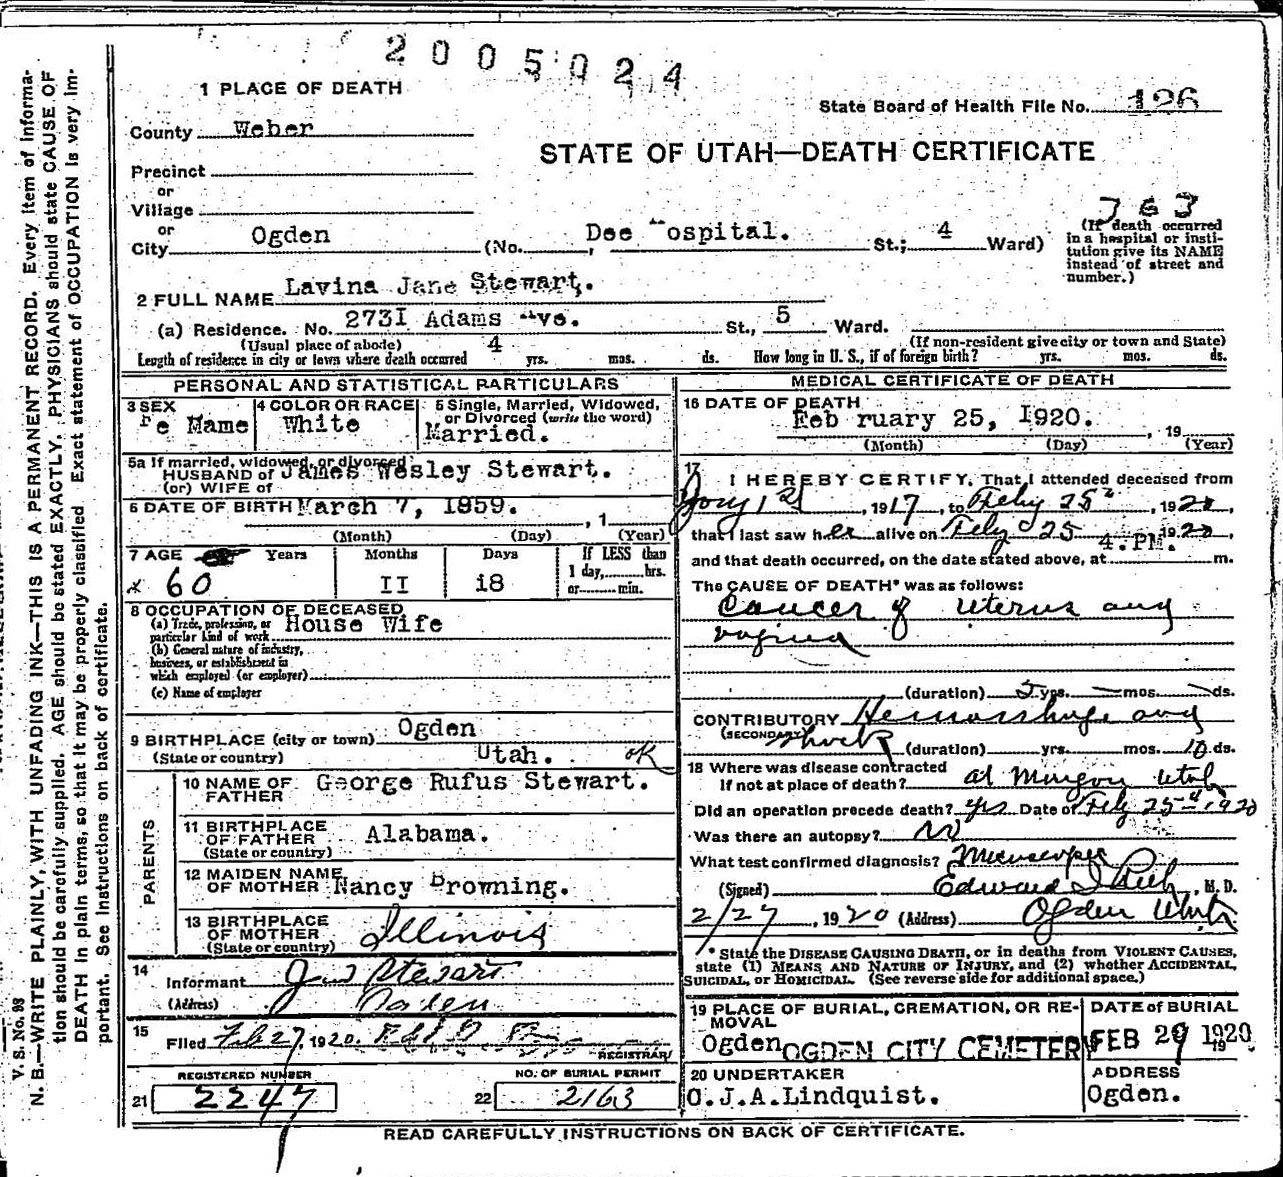 2005024
1 PLACE OF DEATH
State Board of Health File No. 126
County Weber
STATE OF UTAH—DEATH CERTIFICATE
Precinct
or
Village
or
City Ogden (No. Dee Hospital. St.; 4 Ward)
363
(If death occurred
in a hospital or insti-
tution give its NAME
instead of street and
number.)
2 FULL NAME Lavina Jane Stewart.
(a) Residence. No. 273I Adams Ave. St., 5 Ward.
(Usual place of abode) (If non-resident give city or town and State)
Length of residence in city or town where death occurred 4 yrs. mos. ds. How long in U. S., if of foreign birth? yrs. mos. ds.
PERSONAL AND STATISTICAL PARTICULARS
3 SEX Fe Mame
4 COLOR OR RACE White
5 Single, Married, Widowed,
or Divorced (write the word)
Married.
5a If married, widowed, or divorced
HUSBAND of James Wesley Stewart.
(or) WIFE of
6 DATE OF BIRTH March 7, 1859. , 1
(Month) (Day) (Year)
7 AGE Years Months Days If LESS than
1 day, hrs.
or min.
x 60 II i8
8 OCCUPATION OF DECEASED
(a) Trade, profession, or
particular kind of work House Wife
(b) General nature of industry,
business, or establishment in
which employed (or employer)
(c) Name of employer
9 BIRTHPLACE (city or town) Ogden
(State or country) Utah. OK
PARENTS
10 NAME OF
FATHER George Rufus Stewart.
11 BIRTHPLACE
OF FATHER Alabama.
(State or country)
12 MAIDEN NAME
OF MOTHER Nancy Browning.
13 BIRTHPLACE
OF MOTHER Illinois
(State or country)
14
Informant Jas Stewart
(Address) Ogden
15
Filed Feb 27, 1920.
REGISTRAR
REGISTERED NUMBER
21 2247
NO. OF BURIAL PERMIT
22 2163
MEDICAL CERTIFICATE OF DEATH
16 DATE OF DEATH
Feb ruary 25, I920. , 19
(Month) (Day) (Year)
17
I HEREBY CERTIFY, That I attended deceased from
1st, 1917, to Feby 25", 1920,
that I last saw her alive on Feby 25 1920,
and that death occurred, on the date stated above, at 4. PM. m.
The CAUSE OF DEATH* was as follows:
Cancer of uterus and
vagina
(duration) 5 yrs. — mos. — ds.
CONTRIBUTORY Hemorrhage and
(SECONDARY) shock
(duration) yrs. mos. 10 ds.
18 Where was disease contracted
If not at place of death? at Morgan Utah
Did an operation precede death? yes Date of Feby 25" 1920
Was there an autopsy? no
What test confirmed diagnosis? Microscopic
(Signed) Edward I Rich, M. D.
2/27, 1920 (Address) Ogden Utah
* State the DISEASE CAUSING DEATH, or in deaths from VIOLENT CAUSES,
state (1) MEANS AND NATURE OF INJURY, and (2) whether ACCIDENTAL,
SUICIDAL, or HOMICIDAL. (See reverse side for additional space.)
19 PLACE OF BURIAL, CREMATION, OR RE-
MOVAL
Ogden OGDEN CITY CEMETERY
DATE of BURIAL
FEB 29 1920
19
20 UNDERTAKER
O.J.A.Lindquist.
ADDRESS
Ogden.
READ CAREFULLY INSTRUCTIONS ON BACK OF CERTIFICATE.
V. S. No. 98
N. B.—WRITE PLAINLY, WITH UNFADING INK—THIS IS A PERMANENT RECORD. Every item of informa-
tion should be carefully supplied. AGE should be stated EXACTLY. PHYSICIANS should state CAUSE OF
DEATH in plain terms, so that it may be properly classified. Exact statement of OCCUPATION is very im-
portant. See instructions on back of certificate.